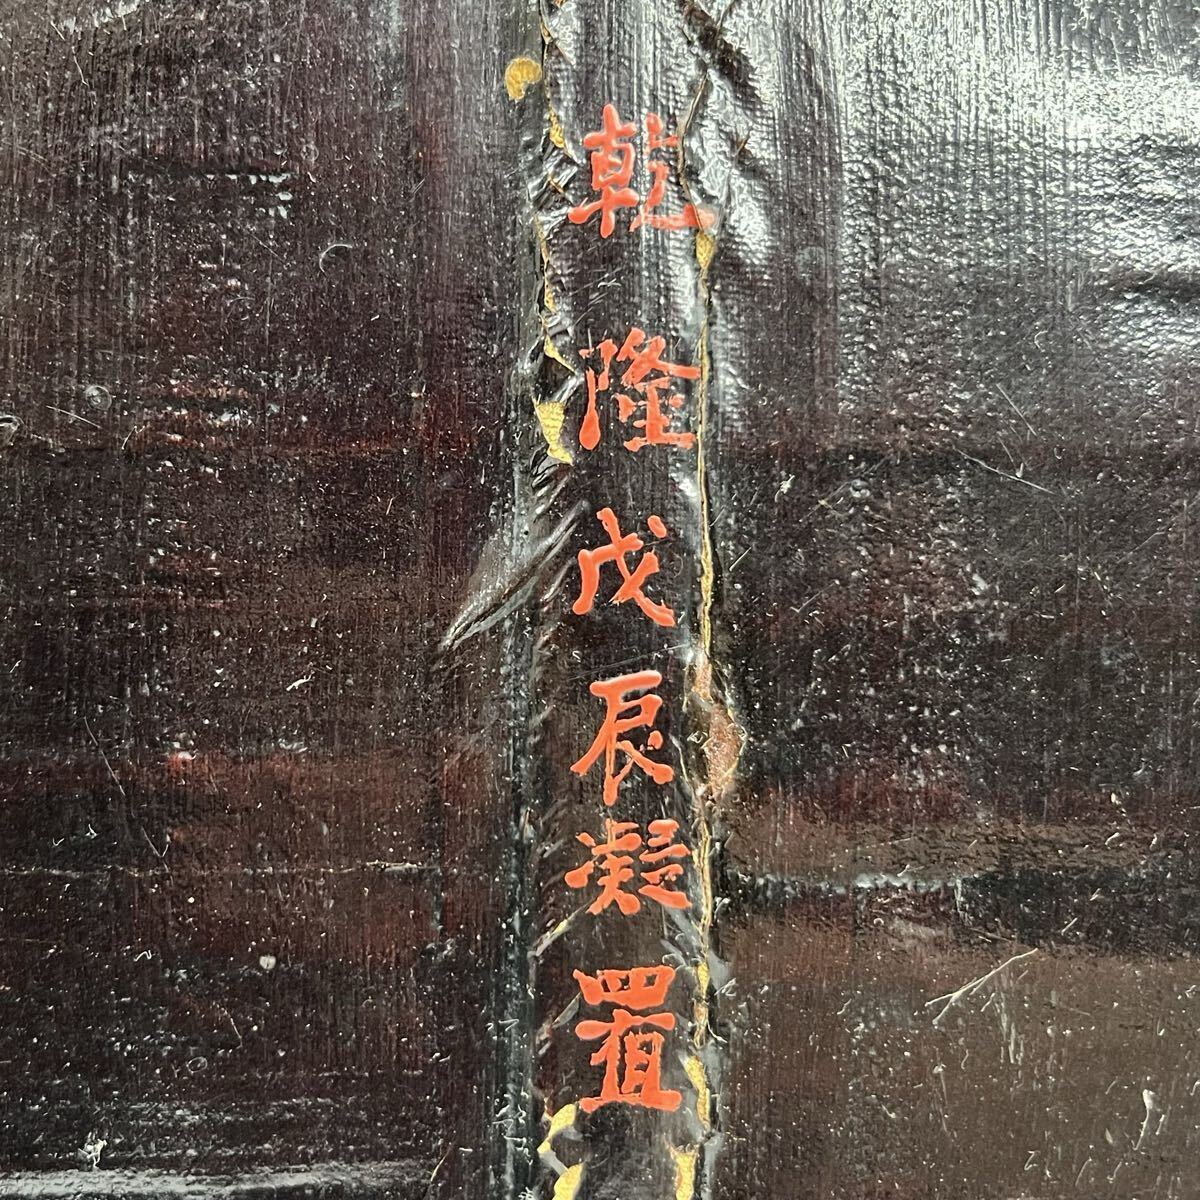 乾隆戊辰凝置